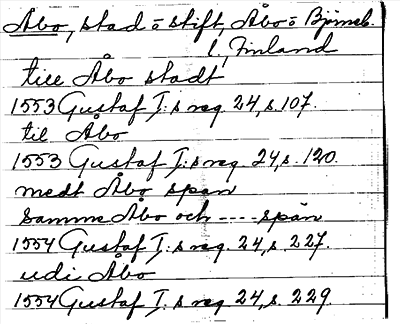 Åbo, stad o stift, Åbo o Björneb.
l, Finland
till Åbo stadt
1553 Gustaf I:s reg. 24, s. 107.
til Åbo
1553 Gustaf I:s reg. 24, s. 120.
medt Åbo span
samme Åbo och ---- span
1554 Gustaf I:s reg. 24, s. 227.
udi Åbo
1554 Gustaf I:s reg. 24, s. 229